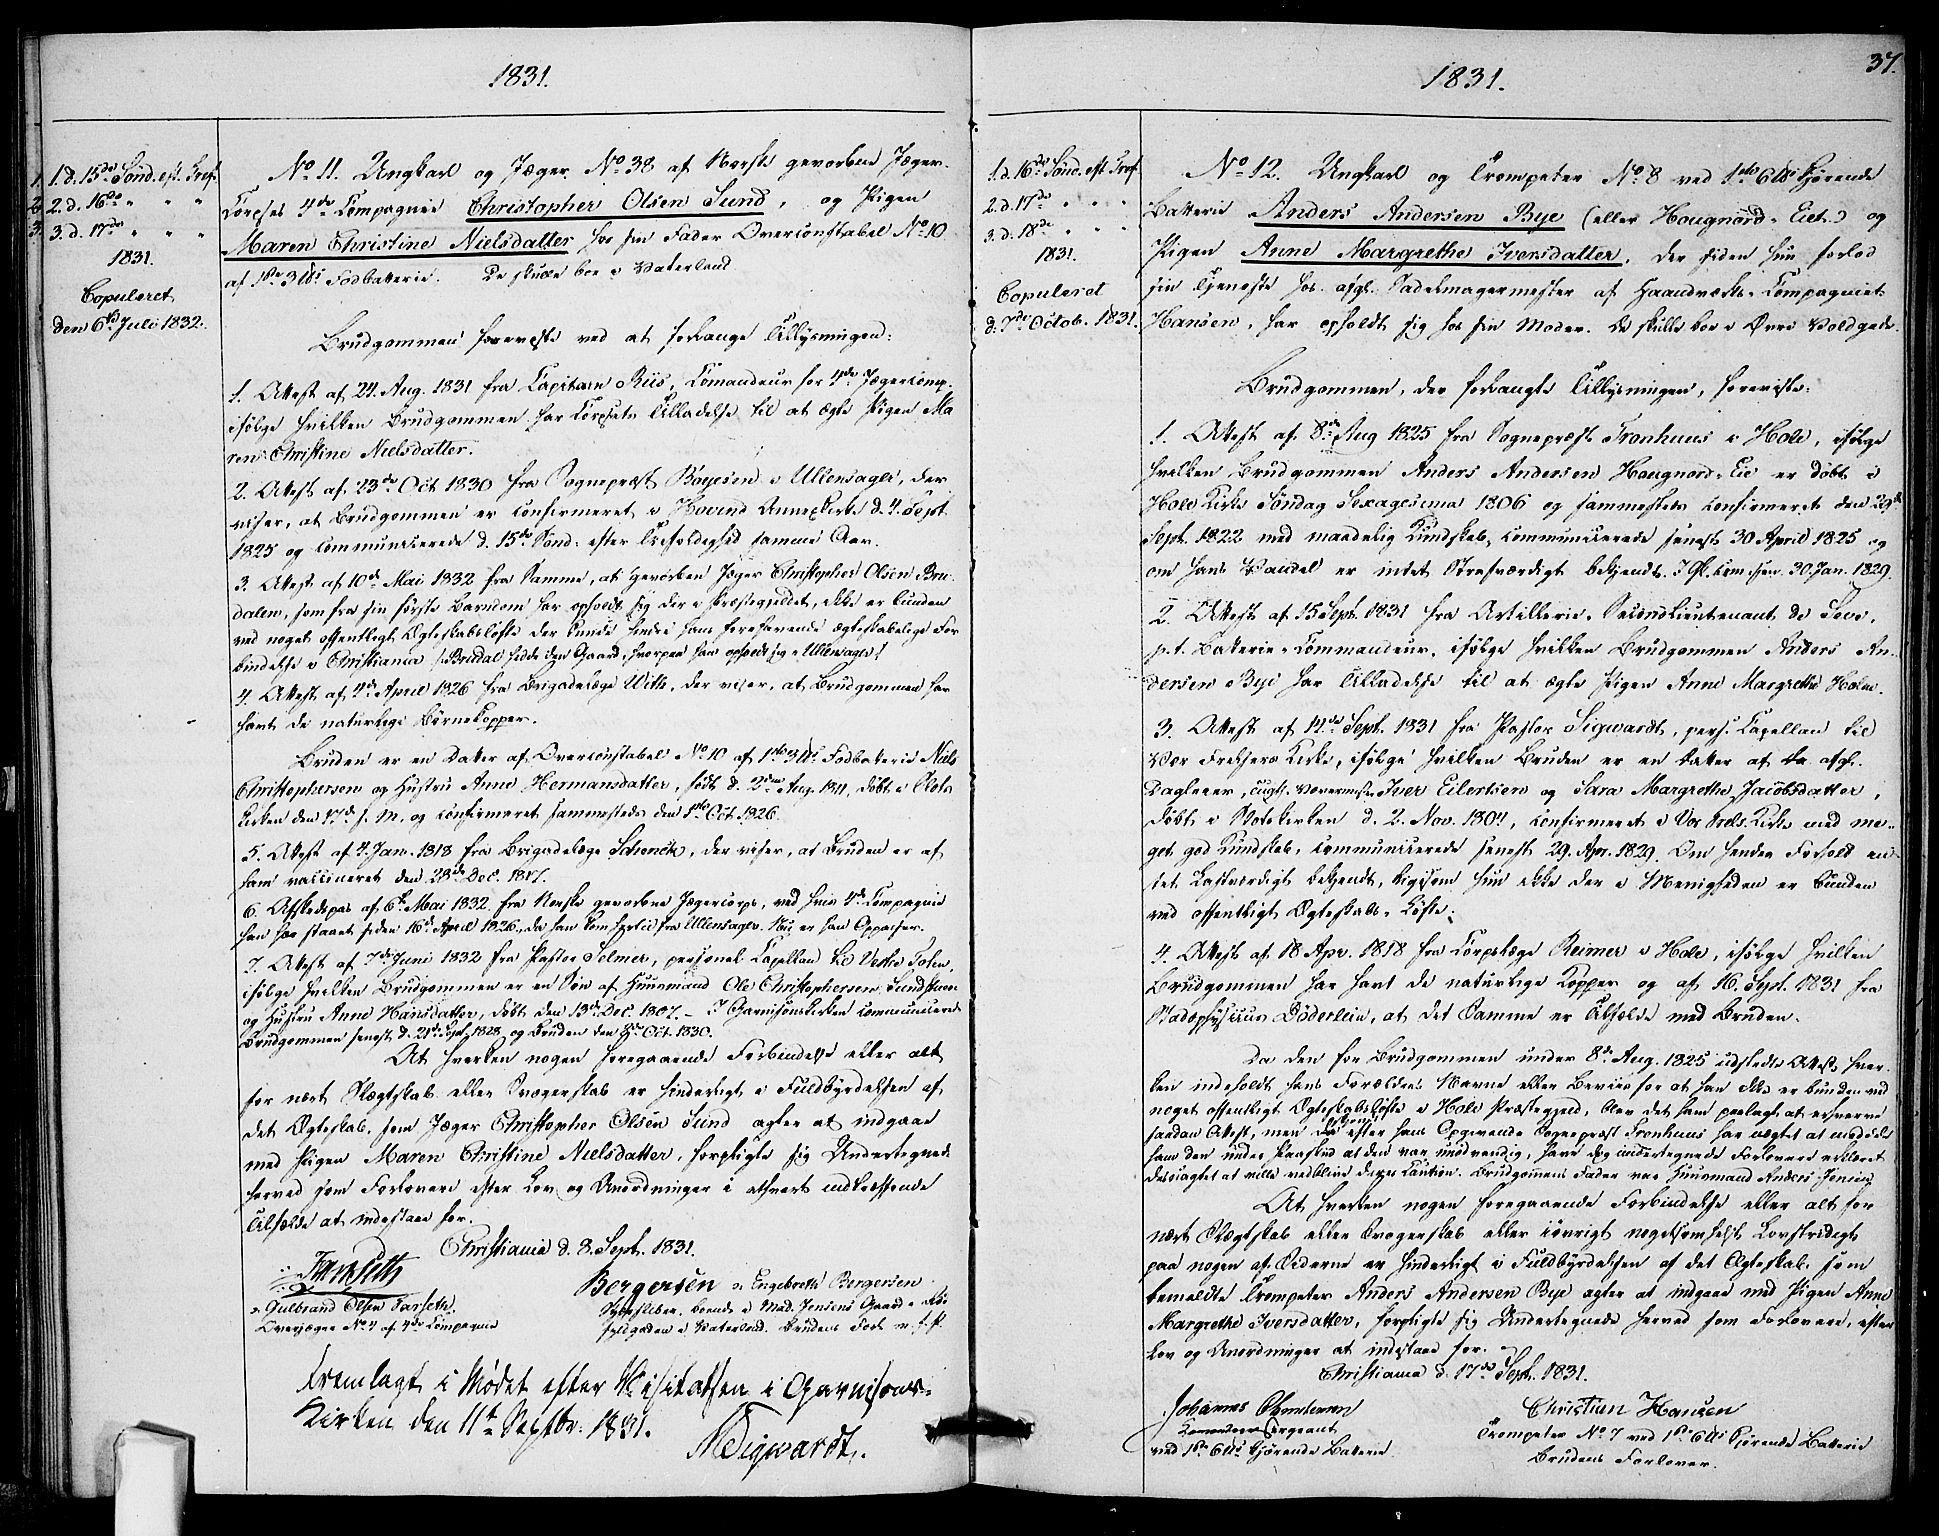 1831.
1. 1. d. 15de Sønd. eft. Tref.
2. 2. d. 16de " " "
3. 3. d. 17de " " "
1831.
Copuleret
den 6te Juli 1832.
No 11. Ungkarl og Jæger No 38 af Norske gevorbne Jæger-
Corpses 4de Compagnie Christopher Olsen Sund, og Pigen
Maren Christine Nielsdatter hos sin Fader Overconstabel No 10
af 1ste 3 ℔s Fodbatterie. De skulle boe i Vaterland.
Brudgommen foreviste ved at forlange Tillysningen:
1. Attest af 24. Aug. 1831 fra Capitain Riis, Comandeur for 4de Jægercomp.
ifölge hvilken Brudgommen har Corpsets Tilladelse til at ægte Pigen Ma
ren Christine Nielsdatter.
2. Attest af 23de Oct 1830 fra Sognepræst Boyesen i Ullensager, der
viser, at Brudgommen er confirmeret i Hovind Annexkirke d. 4. Sept.
1825 og communicerede d. 15de Sønd. efter Trefoldighed samme Aar.
3. Attest af 10de Mai 1832 fra Samme, at gevorben Jæger Christopher Olsen Bru-
dalen, som fra sin første Barndom har opholdt sig der i Præstegjeldet, ikke er bunden
ved noget offentligt Ægteskabslöfte der kunde hindre hans forehavende ægteskabelige For
bindelse i Christiania /: Brudal hedde den Gaard, hvorpaa han opholdt sig i Ullensager :/
4. Attest af 4de April 1826 fra Brigadelæge With, der viser, at Brudgommen har
havt de naturlige Börnekopper.
Bruden er en Datter af Overconstabel No 10 af 1ste 3 ℔s Fodbatterie Niels
Christophersen og Hustru Anne Hermansdatter, født d. 2den Aug. 1811, døbt i Slots
Kirken den 17de s. M. og confirmeret sammesteds den 1ste Oct 1826.
5. Attest af 4. Jan. 1818 fra Brigadelæge Schenck, der viser, at Bruden er af
ham vaccineret den 28de Dec. 1817.
6. Afskedspas af 6te Mai 1832 fra Norske gevorbne Jægercorps, ved hvis 4de Compagnie
han har staaet siden 16de April 1826, da han kom hertil fra Ullensager. Nu er han Oppasser.
7. Attest af 7de Juni 1832 fra Pastor Selmer, personel Capellan til Vestre Toten,
ifölge hvilken Brudgommen er en Søn af Huusmand Ole Christophersen Sundstuen
og Hustru Anne Hansdatter, døbt den 13de Dec. 1807. – I Garnisonskirken communicerede
Brudgommen senest d. 21de Sept. 1828, og Bruden den Oct. 1830.
At hverken nogen foregaaende Forbindelse eller alt
for nært Slægtskab eller Svogerskab er hinderligt i Fuldbyrdelsen af
det Ægteskab, som Jæger Christopher Olsen Sund agter at indgaae
med Pigen Maren Christine Nielsdatter, forpligte sig Undertegnede
herved som Forlovere efter Lov og Anordninger i ethvert indtræffende
Tilfælde at indestaae for.
Christiania d. 3. Sept. 1831.
Farseth
Bergersen
Gulbrand Olsen Farseth.
Overjæger No 4 af 4de Compagnie
Engebreth Bergersen
boende i Mad. Jensens Gaard i
i Vaterland. Brudens Forl.
Fremlagt i Mødet efter Visitatsen i Garnisons-
Kirken den 11te Septbr. 1831.
NSigwardt.
1831.
37.
1. d. 16de Sønd. eft. Tref.
2. d. 17de " " "
3. d. 18de " " "
1831.
Copuleret
d. 7de Octob. 1831.
No 12. Ungkarl og Trompeter No 8 ved 1ste 6 ℔s kjørende
Batterie Anders Andersen Bye (eller Hougnord-Eiet) og
Pigen Anne Margrethe Iversdatter, der siden hun forlod
sin Tjeneste hos afg. Sadelmagermester af Haandværks-Compagniet
Hansen, har opholdt sig hos sin Moder. De skulle boe i Øvre Voldgade.
Brudgommen, der forlangte Tillysningen, foreviste:
1. Attest af 8de Aug 1825 fra Sognepræst Fronhuus i Hole, ifölge
hvilken Brudgommen Anders Andersen Hougnord-Eie er døbt i
Hole Kirke Søndag Sexagesima 1806 og sammesteds confirmeret den 29de
Sept. 1822 med maadelig Kundskab, communicerede senest 30 April 1825 og
om hans Vandel er intet Strafværdigt bekjendt. I Gk. kirken 30. Jan. 1829.
2. Attest af 15 Sept. 1831 fra Artillerie-Secondlieutenant de Seve,
p.t. Batterie-Commandeur, ifölge hvilken Brudgommen Anders An-
dersen Bye har Tilladelse til at ægte Pigen Anne Margrethe Holm.
3. Attest af 14de Sept. 1831 fra Pastor Sigwardt, pers. Capellan til
Vor Frelsers Kirke, ifölge hvilken Bruden er en Datter af
Dagleier, Iver Eilertsen og Sara Margrethe Jacobsdatter,
døbt i Slotskirken d. 2. Nov. 1804, confirmeret i Vor Frels. Kirke med me-
get god Kundskab, communicerede senest 29. Apr. 1829. Om hendes Forhold in-
tet Lastværdigt bekjendt, ligesom hun ikke der i Menigheden er bunden
ved offentligt Ægteskabs-Löfte.
4. Attest af 18 Apr. 1818 fra Corpslæge Reimer i Hole, ifölge hvilken
Brudgommen har havt de naturlige Kopper og af 16. Sept. 1831 fra
Stadsphysicus Döderlein, at det Samme er Tilfælde med Bruden.
Da den for Brudgommen under 8de Aug. 1825 udstedte Attest hver-
ken indeholdt hans Forældres Navne eller Beviis for at han ikke er bunden ved
noget offentligt Ægteskabslöfte i Hole Præstegjeld, blev det ham paalagt at erhverve
saadan Attest, men da efter hans Opgivende Sognepræst Fronhuus har nægtet at meddele
ham den under Paaskud at den var unødvendig, have dog undertegnede Forlovere erklæret
desuagtet at ville vedblive deres Caution. Brudgommens Fader var Huusmand Anders Jensen
At hverken nogen foregaaende Forbindelse eller alt for
nært Slægtskab eller Svogerskab eller iövrigt nogetsomhelst Lovstridigt
paa nogen af Siderne er hinderligt i Fuldbyrdelsen af det Ægteskab, som
bemeldte Trompeter Anders Andersen Bye agter at indgaae med Pigen Anne
Margrethe Iversdatter, forpligte sig Undertegnede herved som Forlovere, efter
Lov og Anordninger at indestaae for.
Christiania d. 17de Sept. 1831.
Johannes
Sergeant
ved 1ste 6 ℔s kjørende Batterie
Christian Hansen
Trompeter No 7 ved 1ste 6 ℔s kjørende Batterie
Brudens Forlover.